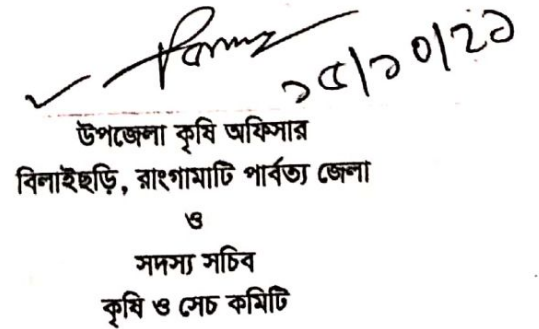 ১৫/১০/২১
উপজেলা কৃষি অফিসার
বিলাইছড়ি, রাংগামাটি পার্বত্য জেলা
ও
সদস্য সচিব
কৃষি ও সেচ কমিটি